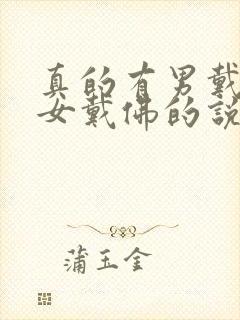 真的有男戴
女戴佛的說
蒲玉金